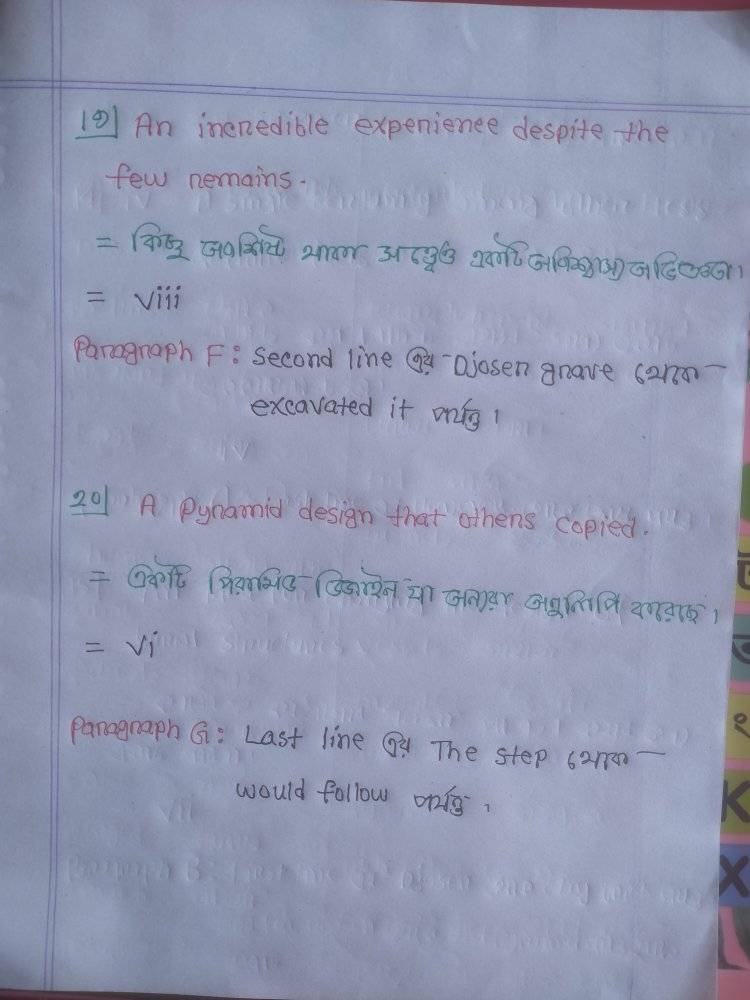 19| An incredible experience despite the
few remains.
= কিছু অবশিষ্ট থাকা সত্ত্বেও একটি অবিশ্বাস্য অভিজ্ঞতা।
= viii
Paragraph F: Second line এর Djoser grave থেকে
excavated it পর্যন্ত।
20| A Pyramid design that others copied.
= একটি পিরামিড ডিজাইন যা অন্যরা অনুলিপি করেছে।
= vi
Paragraph G: Last line এর The step থেকে
would follow পর্যন্ত।
K
X